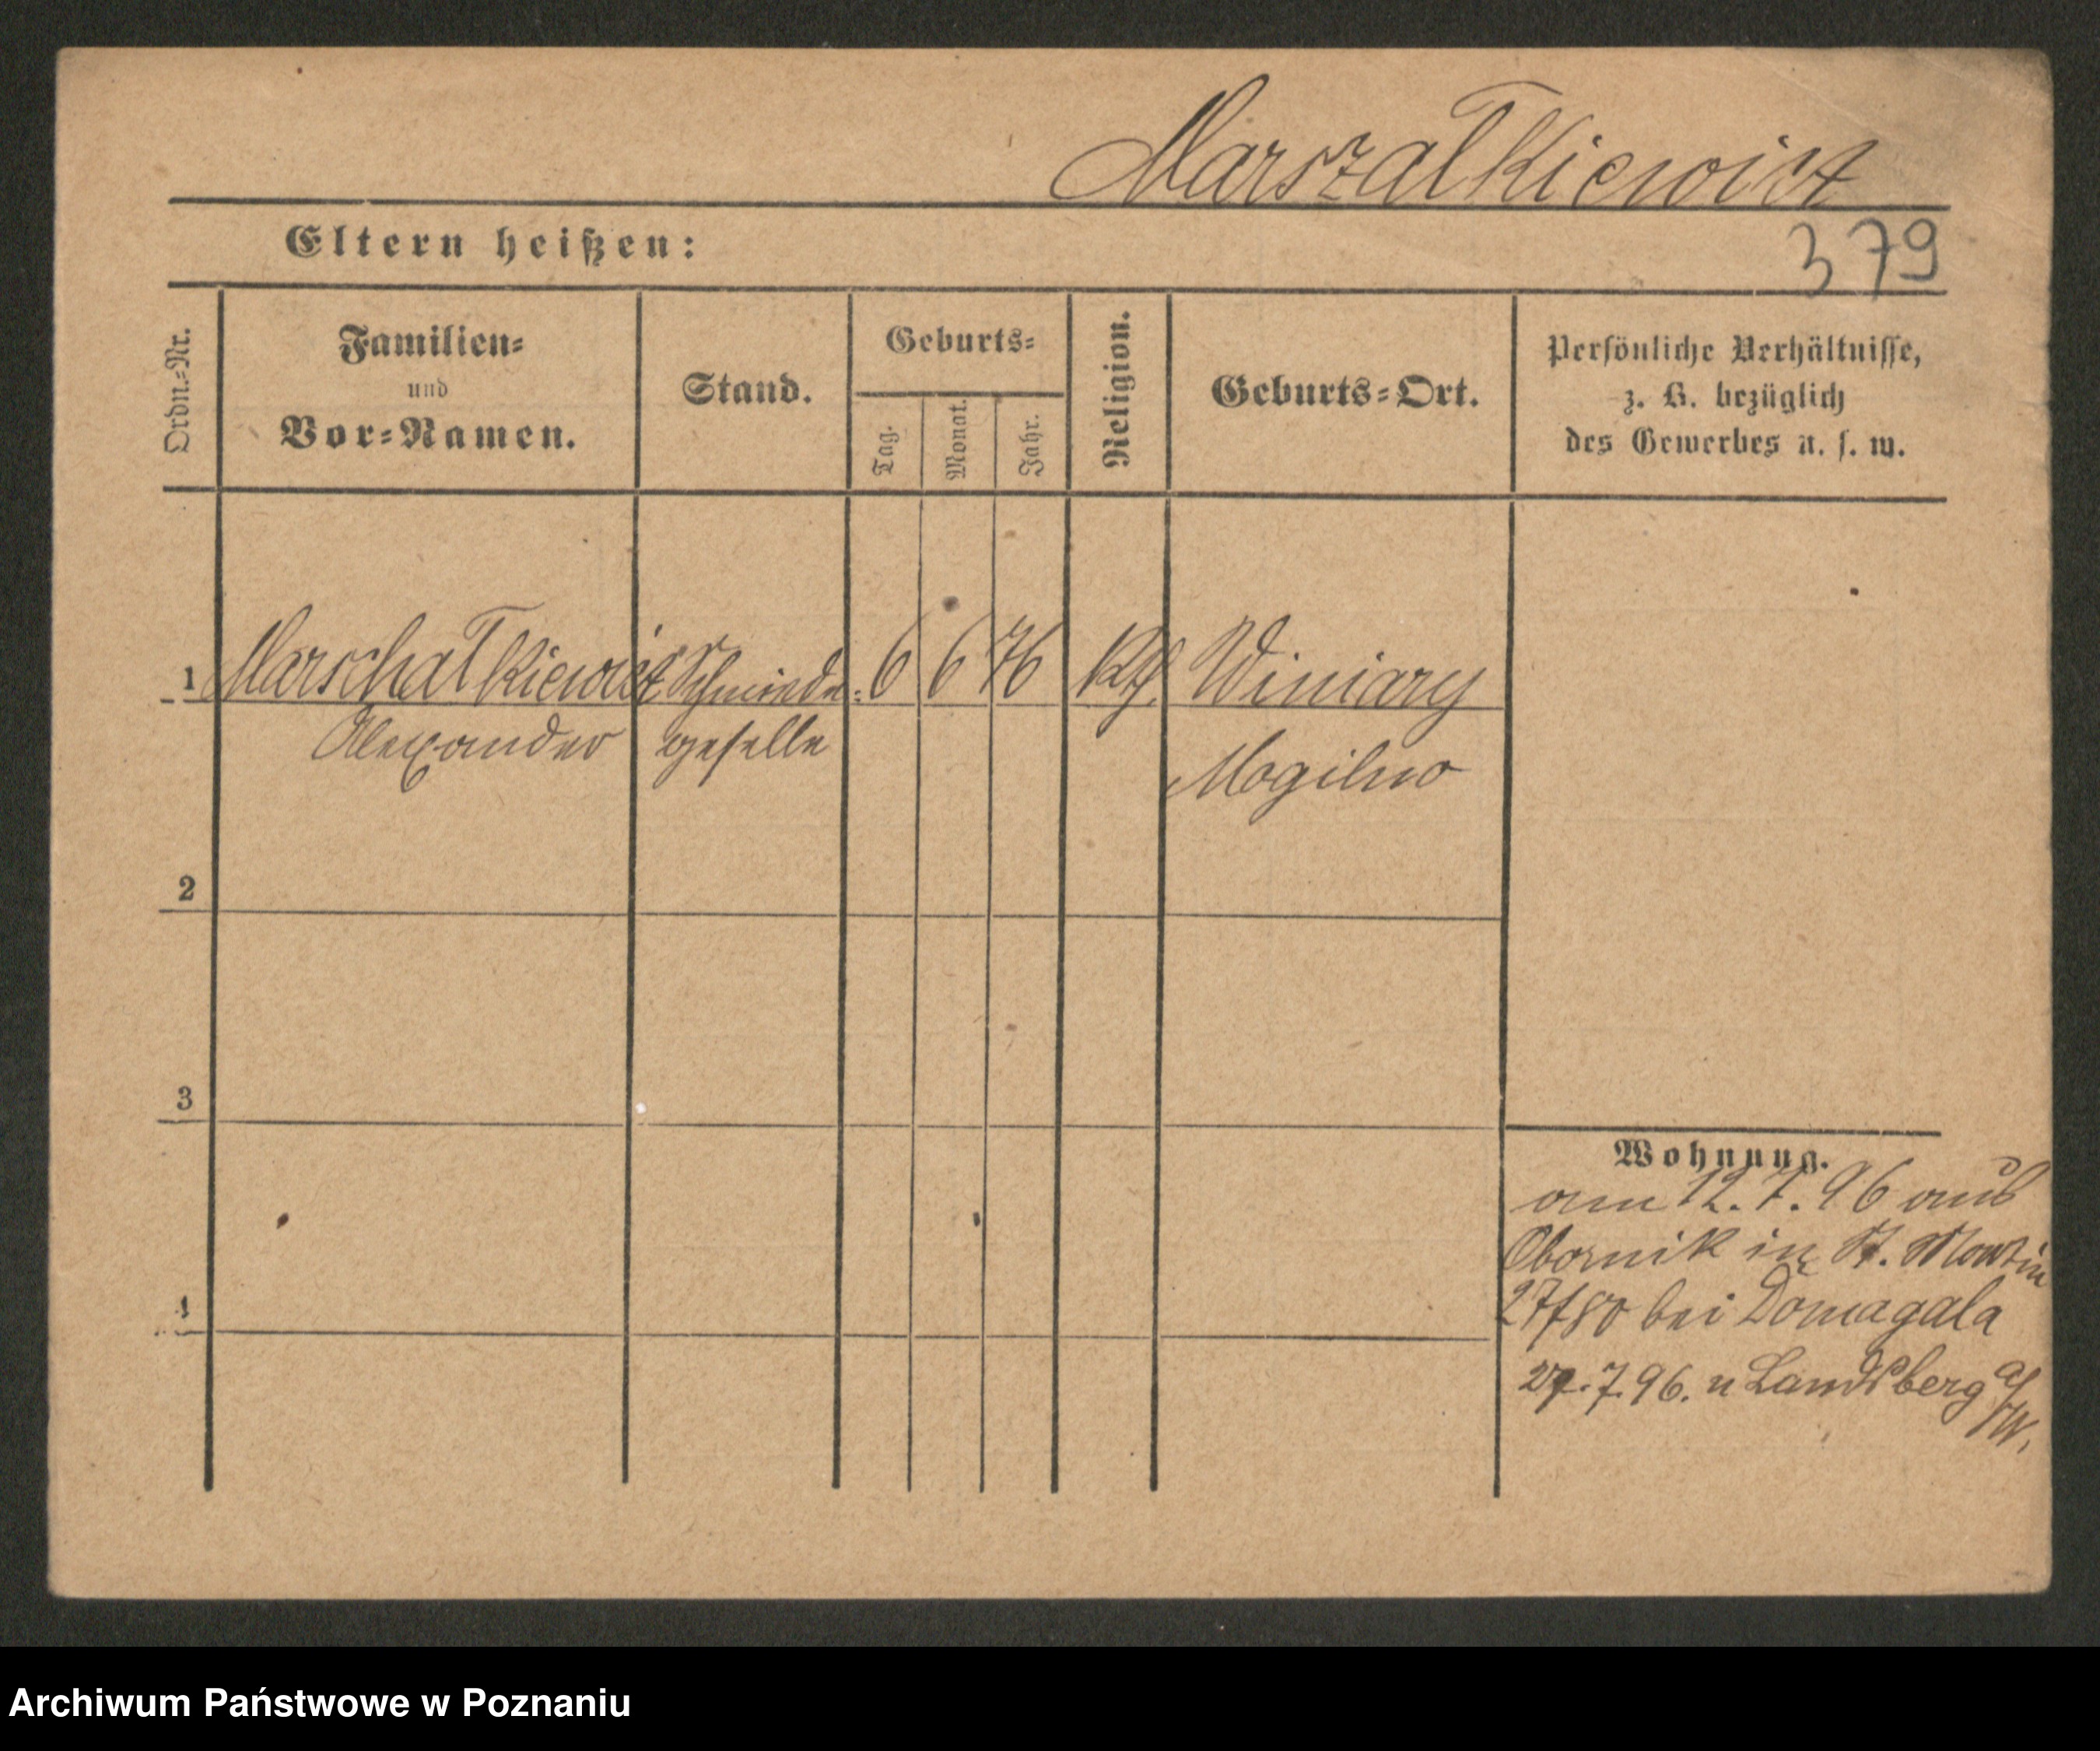 Marszalkiewicz
Eltern heißen:
379
Ordn.-Nr.
Familien-
und
Vor-Namen.
Stand.
Geburts-
Tag.
Monat.
Jahr.
Religion.
Geburts-Ort.
Persönliche Verhältnisse,
z. B. bezüglich
des Gewerbes u. s. w.
1 Marschalkiewicz Schmiede- 6 6 76 Kth. Winiary
Alexander geselle
Mogilno
2
3
4
Wohnung.
am 12.7.96 aus
Obornik in St. Martin
27/80 bei Domagala
27.7.96. n Landsberg a/W.
Archiwum Państwowe w Poznaniu